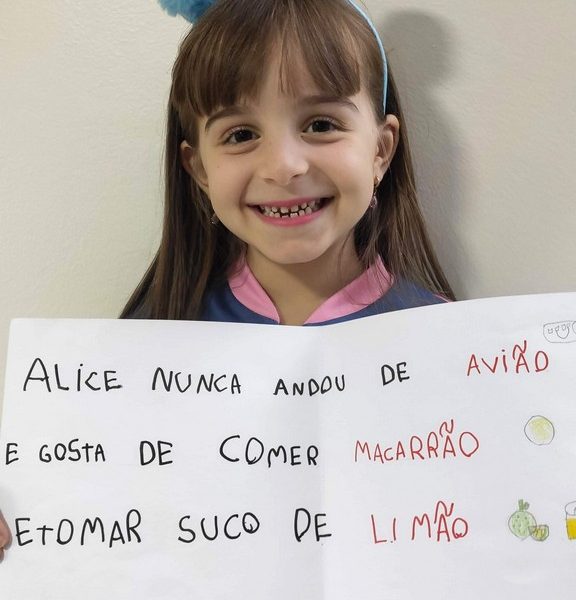 ALICE NUNCA ANDOU DE AVIÃO
E GOSTA DE COMER MACARRÃO
E TOMAR SUCO DE LIMÃO